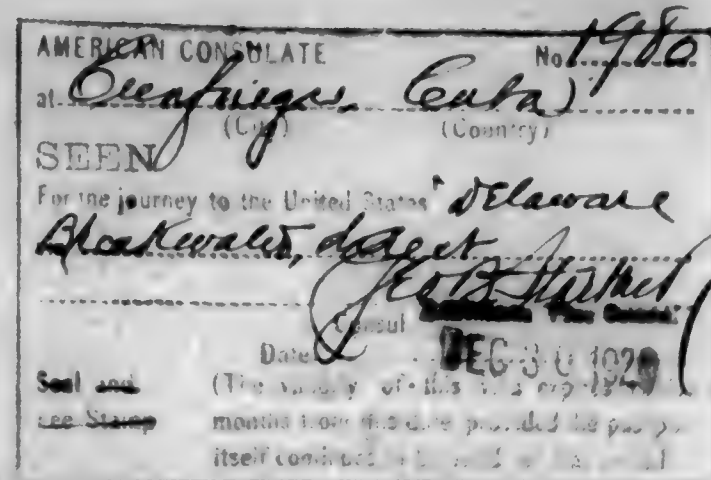 AMERICAN CONSULATE No. 1980
at Cienfuegos, Cuba
(City) (Country)
SEEN
For the journey to the United States Delaware
Breakwater, direct
Geo B. Starbird
Consul
Date DEC 30 192
Seal and (The validity of this visa expires
Fee Stamp months from this date provided the
itself continues to be valid